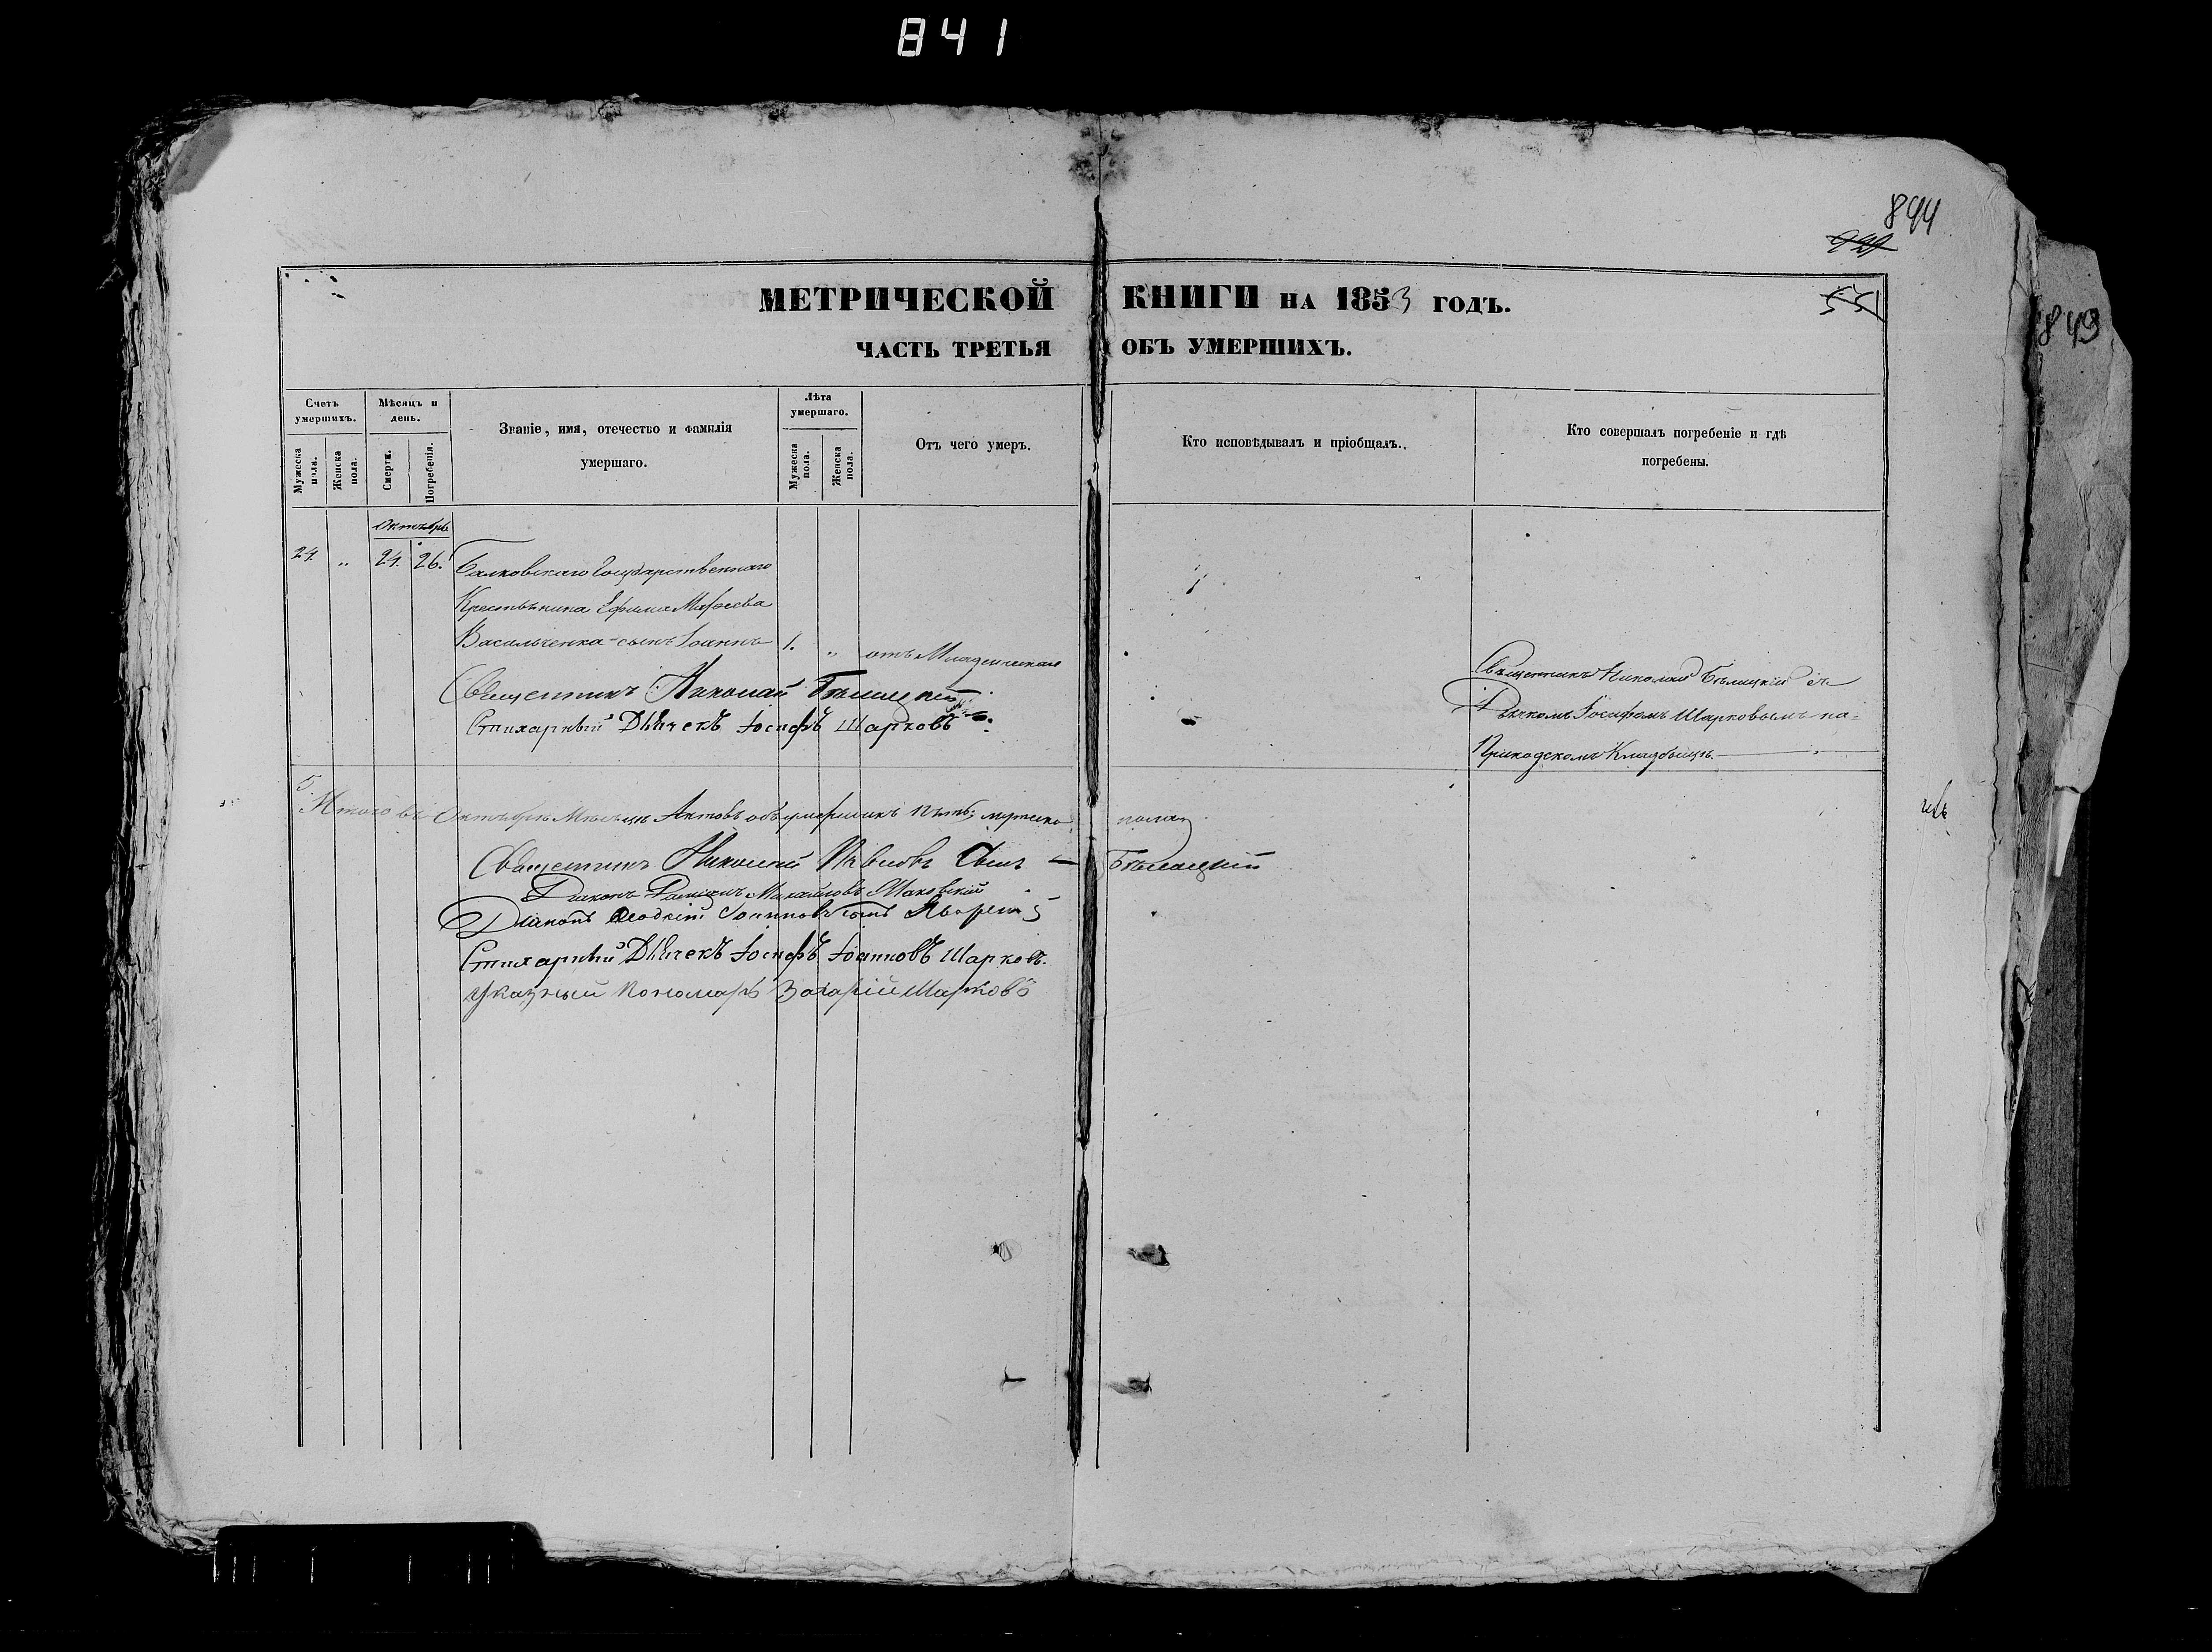 841
844
849
МЕТРИЧЕСКОЙ КНИГИ НА 1853 ГОДЪ.
ЧАСТЬ ТРЕТЬЯ ОБЪ УМЕРШИХЪ.
Счетъ умершихъ.
Мужеска пола.
Женска пола.
Мѣсяцъ и день.
Смерти.
Погребенія.
Званіе, имя, отечество и фамилія
умершаго.
Лѣта умершаго.
Мужеска пола.
Женска пола.
Отъ чего умеръ.
Кто исповѣдывалъ и пріобщалъ.
Кто совершалъ погребеніе и гдѣ
погребены.
Октября
24. „ 24. 26. Балковскаго Государственнаго
Крестьянина Ефима
Васильченка сынъ Іоаннъ 1. „ отъ Младенческой
Священникъ Николай Бѣлицкій съ
Дьячкомъ Іосифомъ Шарковымъ на=
Приходскомъ Кладбищѣ.
Священникъ Николай Бѣлицкій
Стихарный Дьячекъ Іосифъ Шарковъ
Итого въ Октябрѣ Мѣсяцѣ Актовъ объ умершихъ пять; мужеска пола 5
Священникъ Николай Павловъ Сынъ Бѣлицкій
Діаконъ Михайловъ Маковскій
Діаконъ Іоанновъ сынъ
Стихарный Дьячекъ Іосифъ Іоанновъ Шарковъ.
Указный Пономарь Захарій Шарковъ